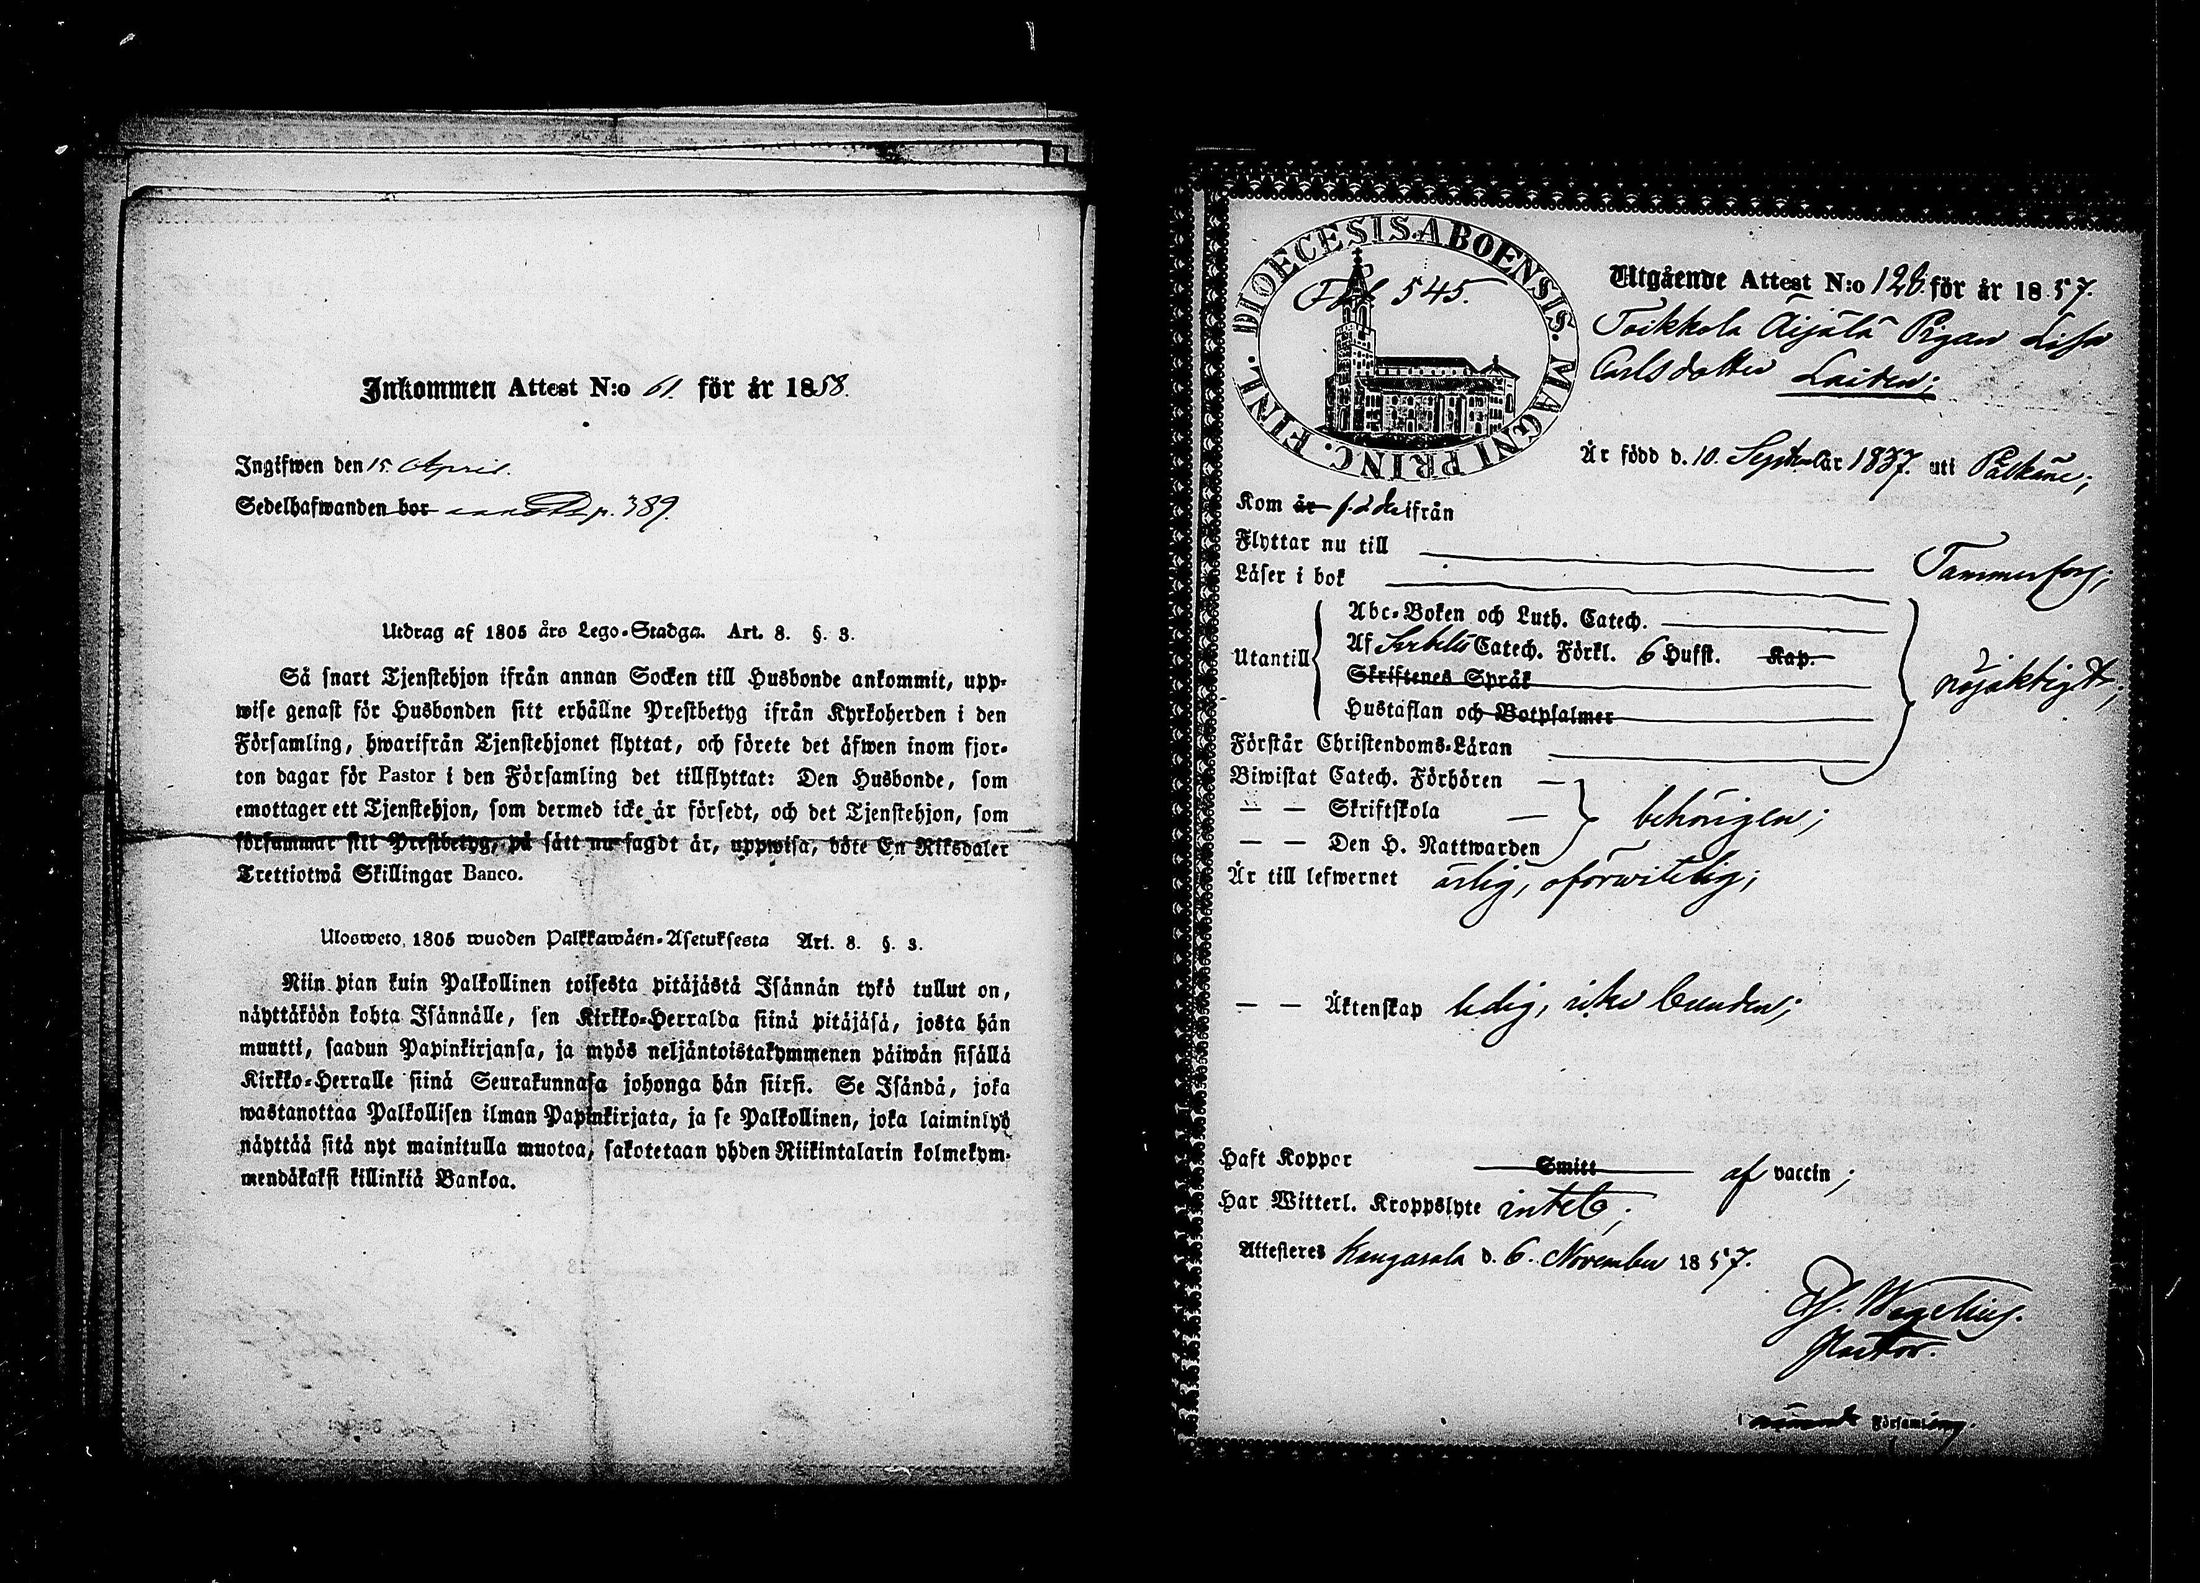 Inkommen Attest N:o 61 för år 1858.
Ingifwen den 15 April.
Sedelhafwanden bor p. 389.
Utdrag af 1805 års Lego-Stadga. Art. 8. §. 3.
Så snart Tjenstehjon ifrån annan Socken till Husbonde ankommit, upp-
wise genast för Husbonden sitt erhållne Prestbetyg ifrån Kyrkoherden i den
Församling, hwarifrån Tjenstehjonet flyttat, och förete det äfwen inom fjor-
ton dagar för Pastor i den Församling det tillflyttat: Den Husbonde, som
emottager ett Tjenstehjon, som dermed icke är försedt, och det Tjenstehjon, som
försummar sitt Prestbetyg, på sätt nu sagdt är, uppwisa, böte En Riksdaler
Trettiotwå Skillingar Banco.
Ulosweto, 1805 wuoden Palkkawäen-Asetuksesta Art. 8. §. 3.
Niin pian kuin Palkollinen toisesta pitäjästä Isännän tykö tullut on,
näyttäköön kohta Isännälle, sen Kirkko-Herralda siinä pitäjäsä, josta hän
muutti, saadun Papinkirjansa, ja myös neljäntoistakymmenen päiwän sisällä
Kirkko-Herralle siinä Seurakunnasa johonga hän siirsi. Se Isändä, joka
wastanottaa Palkollisen ilman Papinkirjata, ja se Palkollinen, joka laiminlyö
näyttää sitä nyt mainitulla muotoa, sakotetaan yhden Riikintalarin kolmekym-
mendäkaksi killinkiä Bankoa.
DIOECESIS ABOENSIS. MAGNI PRINC. FINL.
Fol 545.
Utgående Attest N:o 128 för år 1857.
Toikkola Äijälä Pigan Lisa
Carlsdotter Laiden;
Är född d. 10. September 1837. uti Pälkäne;
Kom år född ifrån
Flyttar nu till Tammerfors;
Läser i bok
Abc-Boken och Luth. Catech.
Utantill Af Catech. Förkl. 6 Hufst. Kap.
Skriftenes Språk nöjaktigt;
Hustaflan och Botpsalmer
Förstår Christendoms-Läran
Biwistat Catech. Förhören
— — Skriftskola behörigen;
— — Den H. Nattwarden
Är till lefwernet ärlig, oförwitelig;
— — Äktenskap ledig, icke bunden;
Haft Koppor Smitt af vaccin;
Har Witterl. Kroppslyte intet;
Attesteres Kangasala d. 6. November 1857.
Wegelius.
Pastor.
i Församling.